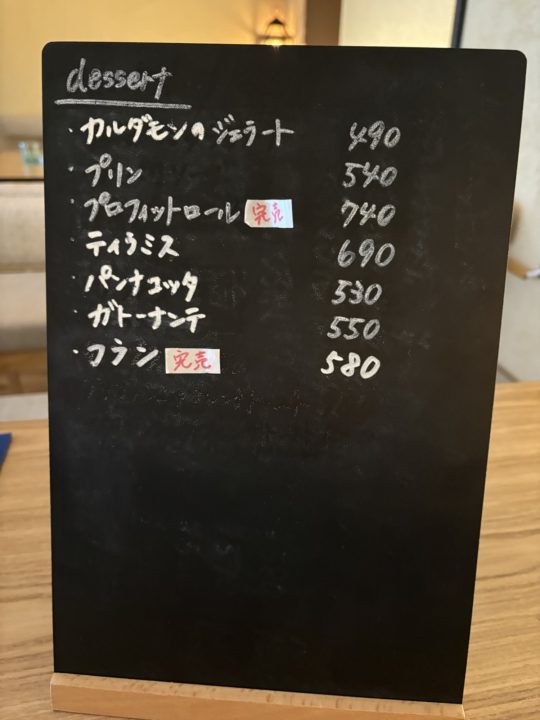 dessert
・カルダモンのジェラート 490
・プリン 540
・プロフィットロール 完売 740
・ティラミス 690
・パンナコッタ 530
・ガトーナンテ 550
・フラン 完売 580